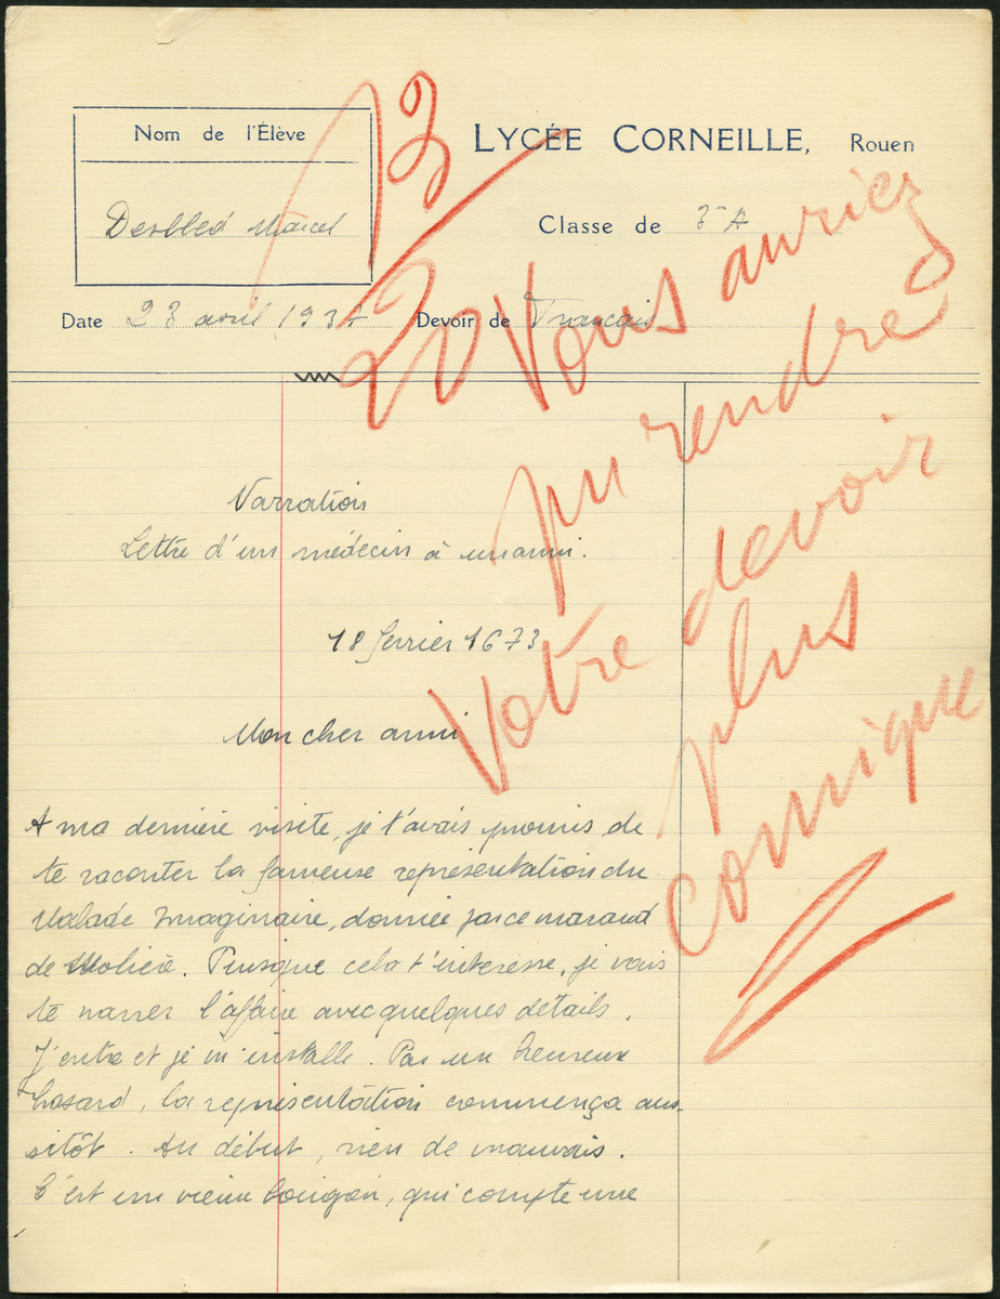 Nom de l'Élève
LYCÉE CORNEILLE, Rouen
Desbled Marcel
Classe de 3e A
Date 23 avril 1937 Devoir de Français
13
20
Vous auriez
pu rendre
votre devoir
plus
comique
Narration
Lettre d'un médecin à un ami.
18 février 1673
Mon cher ami
A ma dernière visite, je t'avais promis de
te raconter la fameuse représentation du
Malade Imaginaire, donnée par ce maraud
de Molière. Puisque cela t'intéresse, je vais
te narrer l'affaire avec quelques détails.
J'entre et je m'installe. Par un heureux
hasard, la représentation commença aus-
sitôt. Au début, rien de mauvais.
C'est un vieux bougon, qui compte une